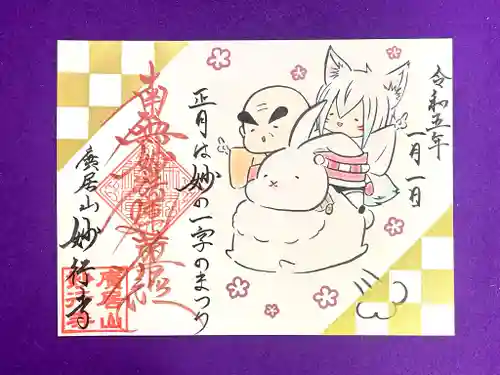 令和五年
一月一日
正月は妙の一字のまつり
南無妙法蓮華経
廣居山妙行寺